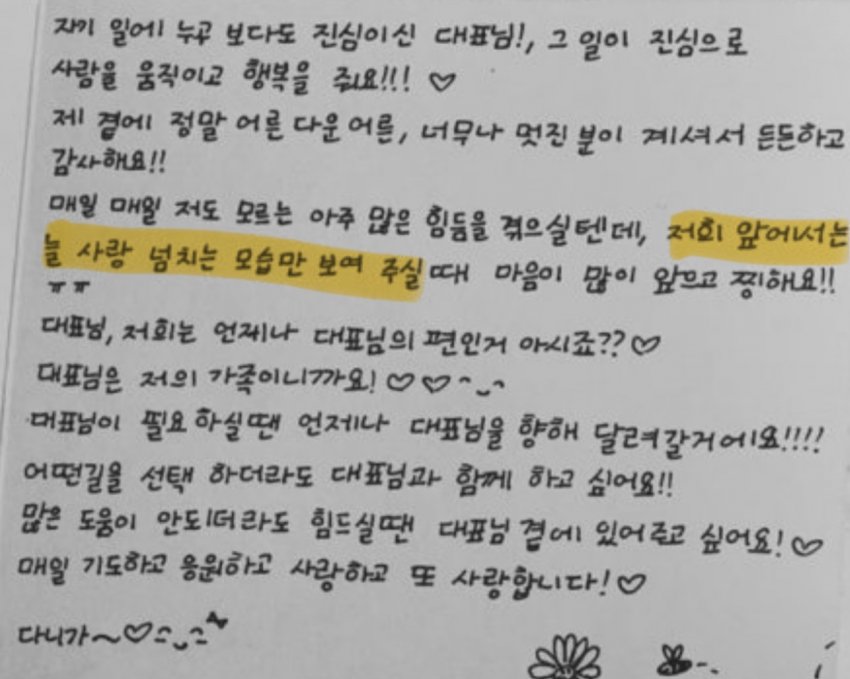 자기 일에 누구 보다도 진심이신 대표님!, 그 일이 진심으로
사람을 움직이고 행복을 줘요!!! ♡
제 곁에 정말 어른 다운 어른, 너무나 멋진 분이 계셔서 든든하고
감사해요!!
매일 매일 저도 모르는 아주 많은 힘듦을 겪으실텐데, 저희 앞에서는
늘 사랑 넘치는 모습만 보여 주실때 마음이 많이 앞으고 찡해요!!
ㅠㅠ
대표님, 저희는 언제나 대표님의 편인거 아시죠?? ♡
대표님은 저의 가족이니까요! ♡♡ ^‿^
대표님이 필요 하실땐 언제나 대표님을 향해 달려갈거에요!!!!
어떤길을 선택 하더라도 대표님과 함께 하고 싶어요!!
많은 도움이 안되더라도 힘드실땐 대표님 곁에 있어주고 싶어요! ♡
매일 기도하고 응원하고 사랑하고 또 사랑합니다! ♡
다니가~♡